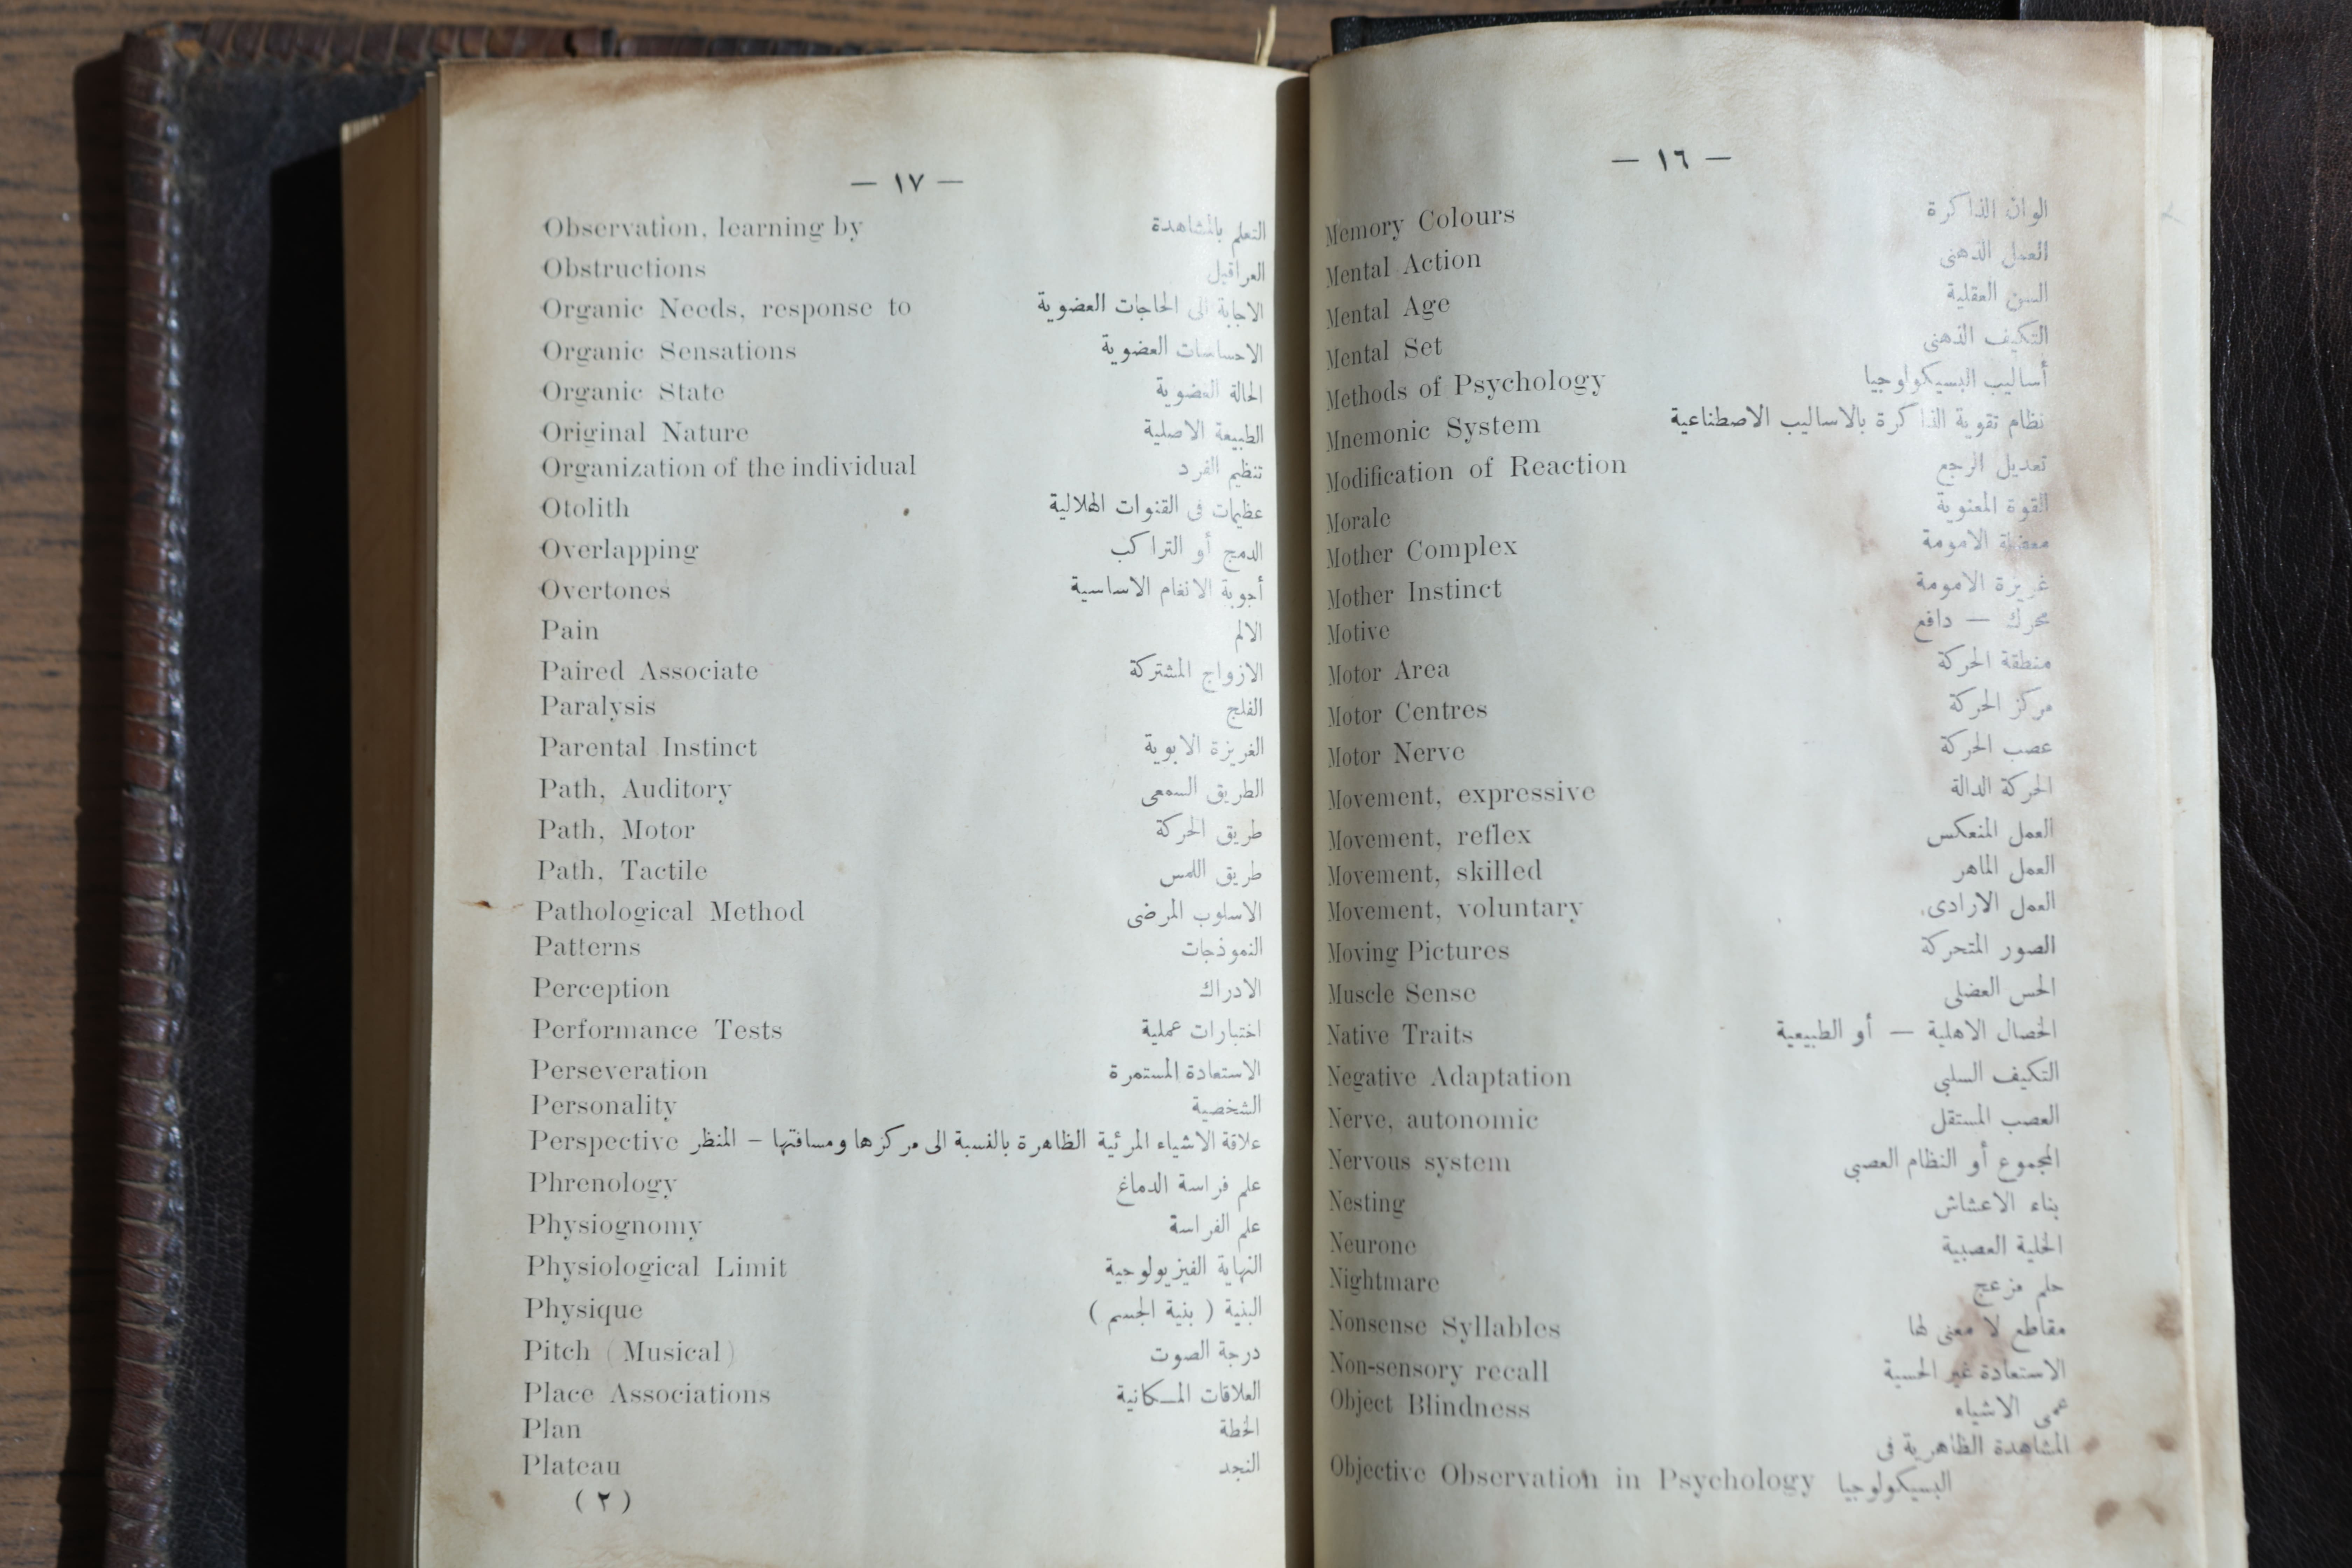 — ١٦ —
Memory Colours الوان الذاكرة
Mental Action العمل الذهنى
Mental Age السن العقلية
Mental Set التكيف الذهنى
Methods of Psychology أساليب البسيكولوجيا
Mnemonic System نظام تقوية الذاكرة بالاساليب الاصطناعية
Modification of Reaction تعديل الرجع
Morale القوة المعنوية
Mother Complex الامومة
Mother Instinct غريزة الامومة
Motive محرك — دافع
Motor Area منطقة الحركة
Motor Centres مركز الحركة
Motor Nerve عصب الحركة
Movement, expressive الحركة الدالة
Movement, reflex العمل المنعكس
Movement, skilled العمل الماهر
Movement, voluntary العمل الارادى
Moving Pictures الصور المتحركة
Muscle Sense الحس العضلى
Native Traits الخصال الاهلية — أو الطبيعية
Negative Adaptation التكيف السلبي
Nerve, autonomic العصب المستقل
Nervous system المجموع أو النظام العصبي
Nesting بناء الاعشاش
Neurone الخلية العصبية
Nightmare حلم مزعج
Nonsense Syllables مقاطع لا معنى لها
Non-sensory recall الاستعادة غير الحسية
Object Blindness عمى الاشياء
المشاهدة الظاهرية فى
Objective Observation in Psychology البسيكولوجيا
— ١٧ —
Observation, learning by التعلم بالمشاهدة
Obstructions العراقيل
Organic Needs, response to الاجابة الى الحاجات العضوية
Organic Sensations الاحساسات العضوية
Organic State الحالة العضوية
Original Nature الطبيعة الاصلية
Organization of the individual تنظيم الفرد
Otolith عظيمات فى القنوات الهلالية
Overlapping الدمج أو التراكب
Overtones أجوبة الانغام الاساسية
Pain الالم
Paired Associate الازواج المشتركة
Paralysis الفلج
Parental Instinct الغريزة الابوية
Path, Auditory الطريق السمعى
Path, Motor طريق الحركة
Path, Tactile طريق اللمس
Pathological Method الاسلوب المرضى
Patterns النموذجات
Perception الادراك
Performance Tests اختبارات عملية
Perseveration الاستعادة المستمرة
Personality الشخصية
Perspective علاقة الاشياء المرئية الظاهرة بالنسبة الى مركزها ومسافتها – المنظر
Phrenology علم فراسة الدماغ
Physiognomy علم الفراسة
Physiological Limit النهاية الفيزيولوجية
Physique البنية ( بنية الجسم )
Pitch (Musical) درجة الصوت
Place Associations العلاقات المكانية
Plan الخطة
Plateau النجد
( ٢ )